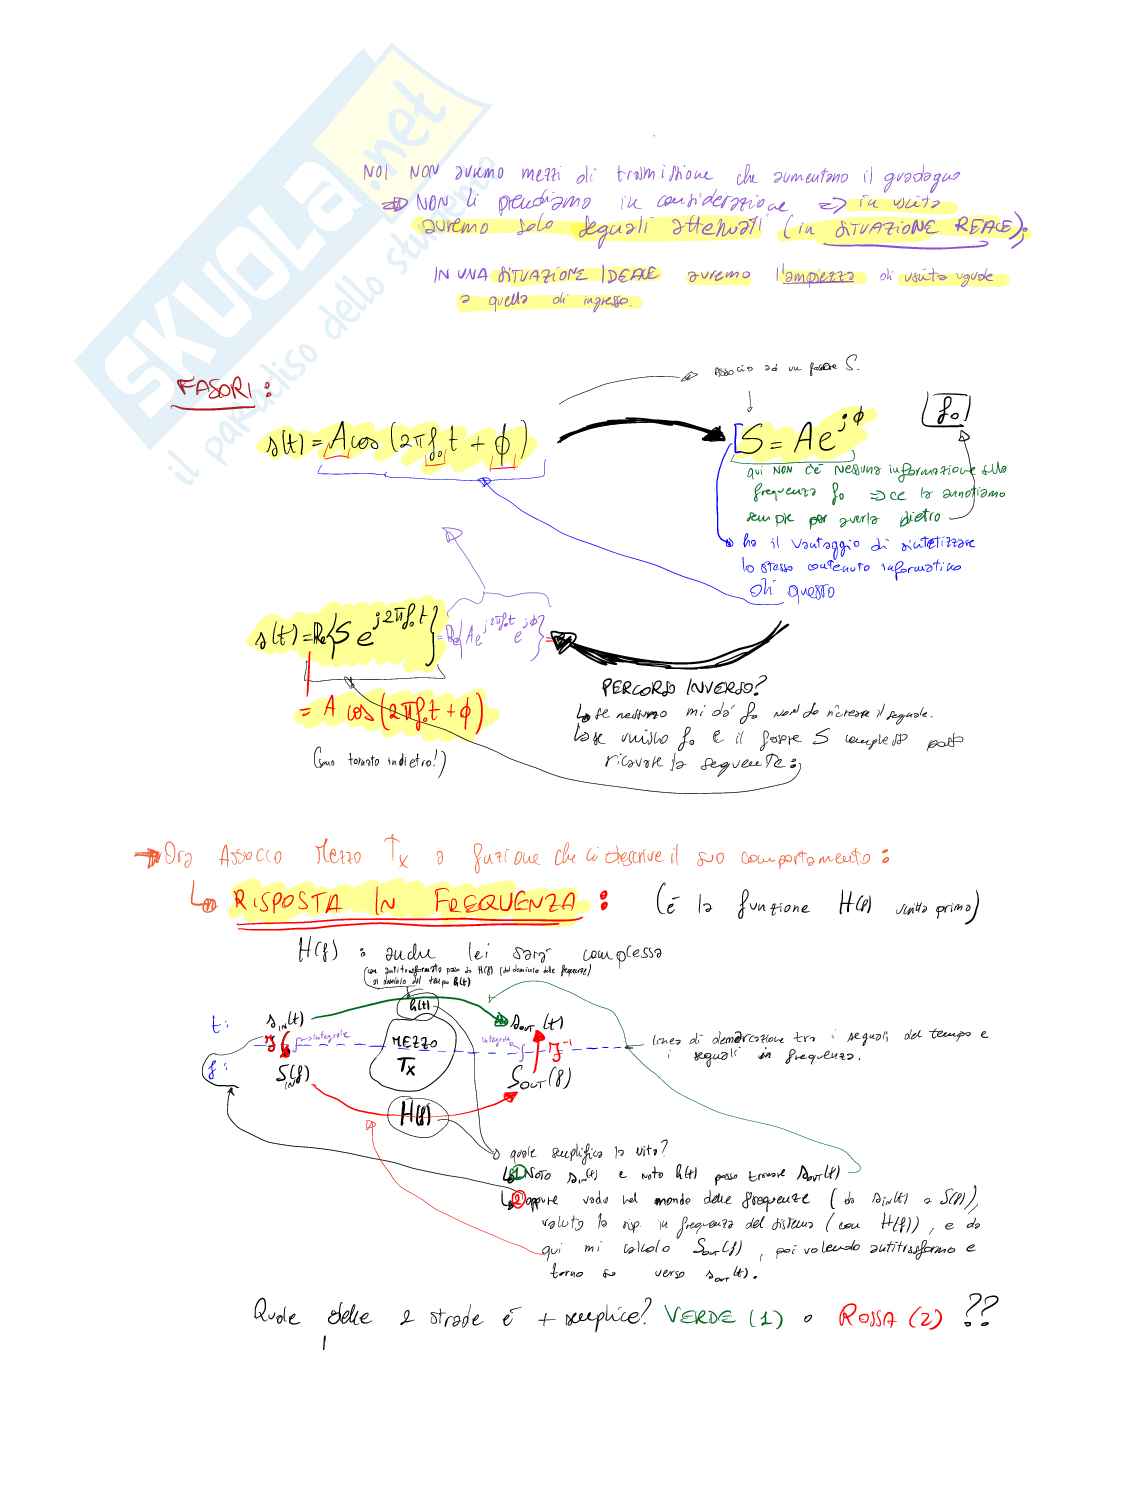 SKUOLA.net
il paradiso dello studente
NOI NON avremo mezzi di trasmissione che aumentano il guadagno
=> NON li prendiamo in considerazione => in uscita
avremo solo segnali attenuati (in SITUAZIONE REALE);
IN UNA SITUAZIONE IDEALE avremo l'ampiezza di uscita uguale
a quella di ingresso.
FASORI:
associo ad un fasore S.
s(t) = A cos(2πf₀t + φ)
S = Ae^{jφ}
f₀
qui NON c'è nessuna informazione sulla
frequenza f₀ => ce la annotiamo
sempre per averla dietro
ha il vantaggio di sintetizzare
lo stesso contenuto informativo
di questo
s(t) = Re{S e^{j2πf₀t}} = Re{Ae^{j2πf₀t} e^{jφ}} =
= A cos(2πf₀t + φ)
(sono tornato indietro!)
PERCORSO INVERSO?
se nessuno mi dà f₀ non so ricreare il segnale.
se unisco f₀ e il fasore S complesso posso
ricavare la seguente:
→ Ora Associo Mezzo Tx a funzione che ci descrive il suo comportamento:
RISPOSTA IN FREQUENZA: (è la funzione H(f) vista prima)
H(f): anche lei sarà complessa
(con antitrasformata passo da H(f) (dal dominio delle frequenze)
al dominio del tempo h(t)
h(t)
t: s_IN(t) s_OUT(t)
ℱ integrale MEZZO Tx integrale ℱ⁻¹
linea di demarcazione tra i segnali del tempo e
i segnali in frequenza.
f: S_IN(f) S_OUT(f)
H(f)
quale semplifica la vita?
1 Noto s_IN(t) e noto h(t) posso trovare s_OUT(t)
2 oppure vado nel mondo delle frequenze (da s_IN(t) a S(f)),
valuto la risp. in frequenza del sistema (con H(f)), e da
qui mi calcolo S_OUT(f), poi volendo antitrasformo e
torno su verso s_OUT(t).
Quale delle 2 strade è + semplice? VERDE (1) o ROSSA (2) ??